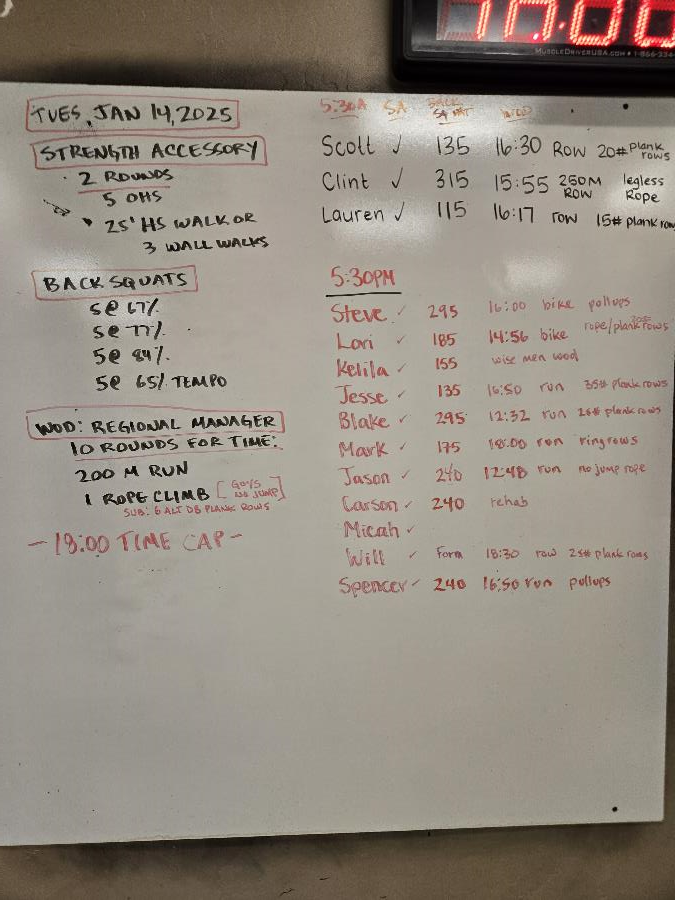 10:00
MUSCLEDRIVERUSA.COM • 1-866-
TUES, JAN 14, 2025
STRENGTH ACCESSORY
• 2 ROUNDS
5 OHS
25' HS WALK OR
3 WALL WALKS
BACK SQUATS
5@ 67%
5@ 77%
5@ 84%
5@ 65% TEMPO
WOD: REGIONAL MANAGER
10 ROUNDS FOR TIME:
200 M RUN
1 ROPE CLIMB [GUYS NO JUMP]
SUB: 6 ALT DB PLANK ROWS
- 18:00 TIME CAP -
5:30A SA BACK SQUAT WOD
Scott ✓ 135 16:30 ROW 20# plank rows
Clint ✓ 315 15:55 250M ROW legless Rope
Lauren ✓ 115 16:17 row 15# plank row
5:30PM
Steve ✓ 295 16:00 bike pullups
Lori ✓ 185 14:56 bike rope/plank rows
Kelila ✓ 155 wise men wod
Jesse ✓ 135 16:50 run 35# plank rows
Blake ✓ 295 12:32 run 25# plank rows
Mark ✓ 175 18:00 run ring rows
Jason ✓ 240 12:48 run no jump rope
Carson ✓ 240 rehab
Micah ✓
Will ✓ Form 18:30 row 25# plank rows
Spencer ✓ 240 16:50 run pullups